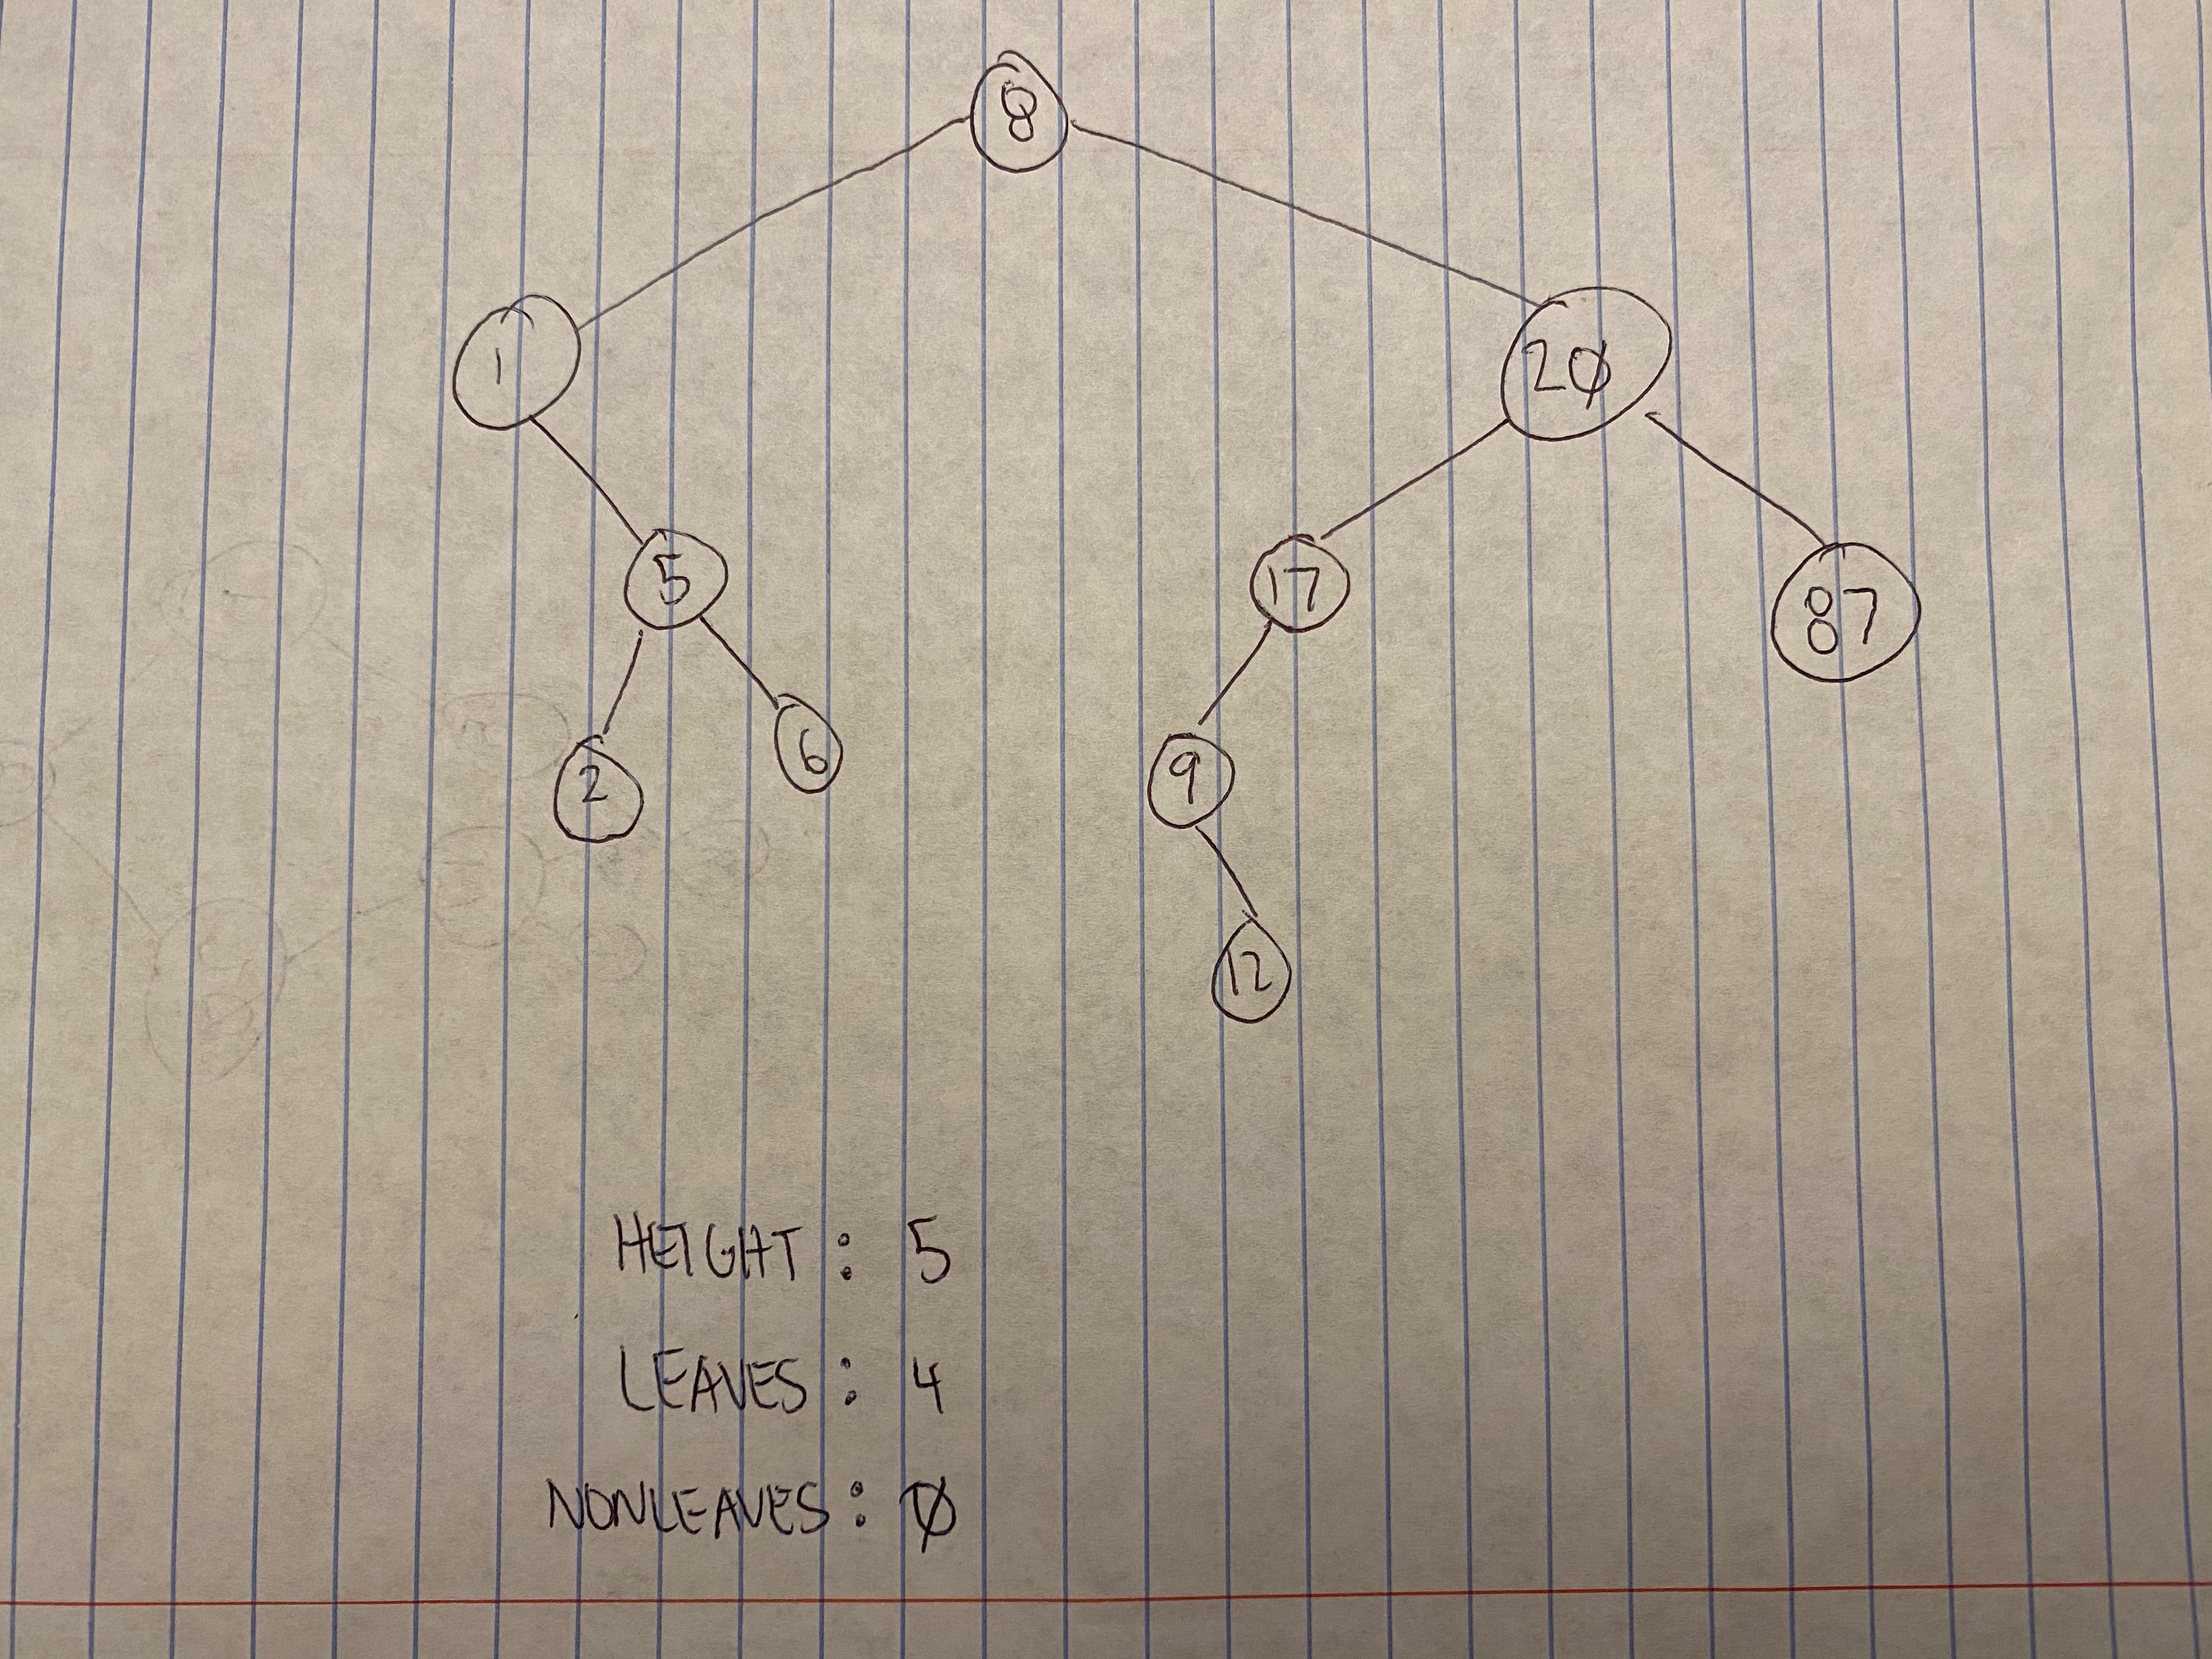 8
1 20
5 17 87
2 6 9
12
HEIGHT: 5
LEAVES: 4
NONLEAVES: 0